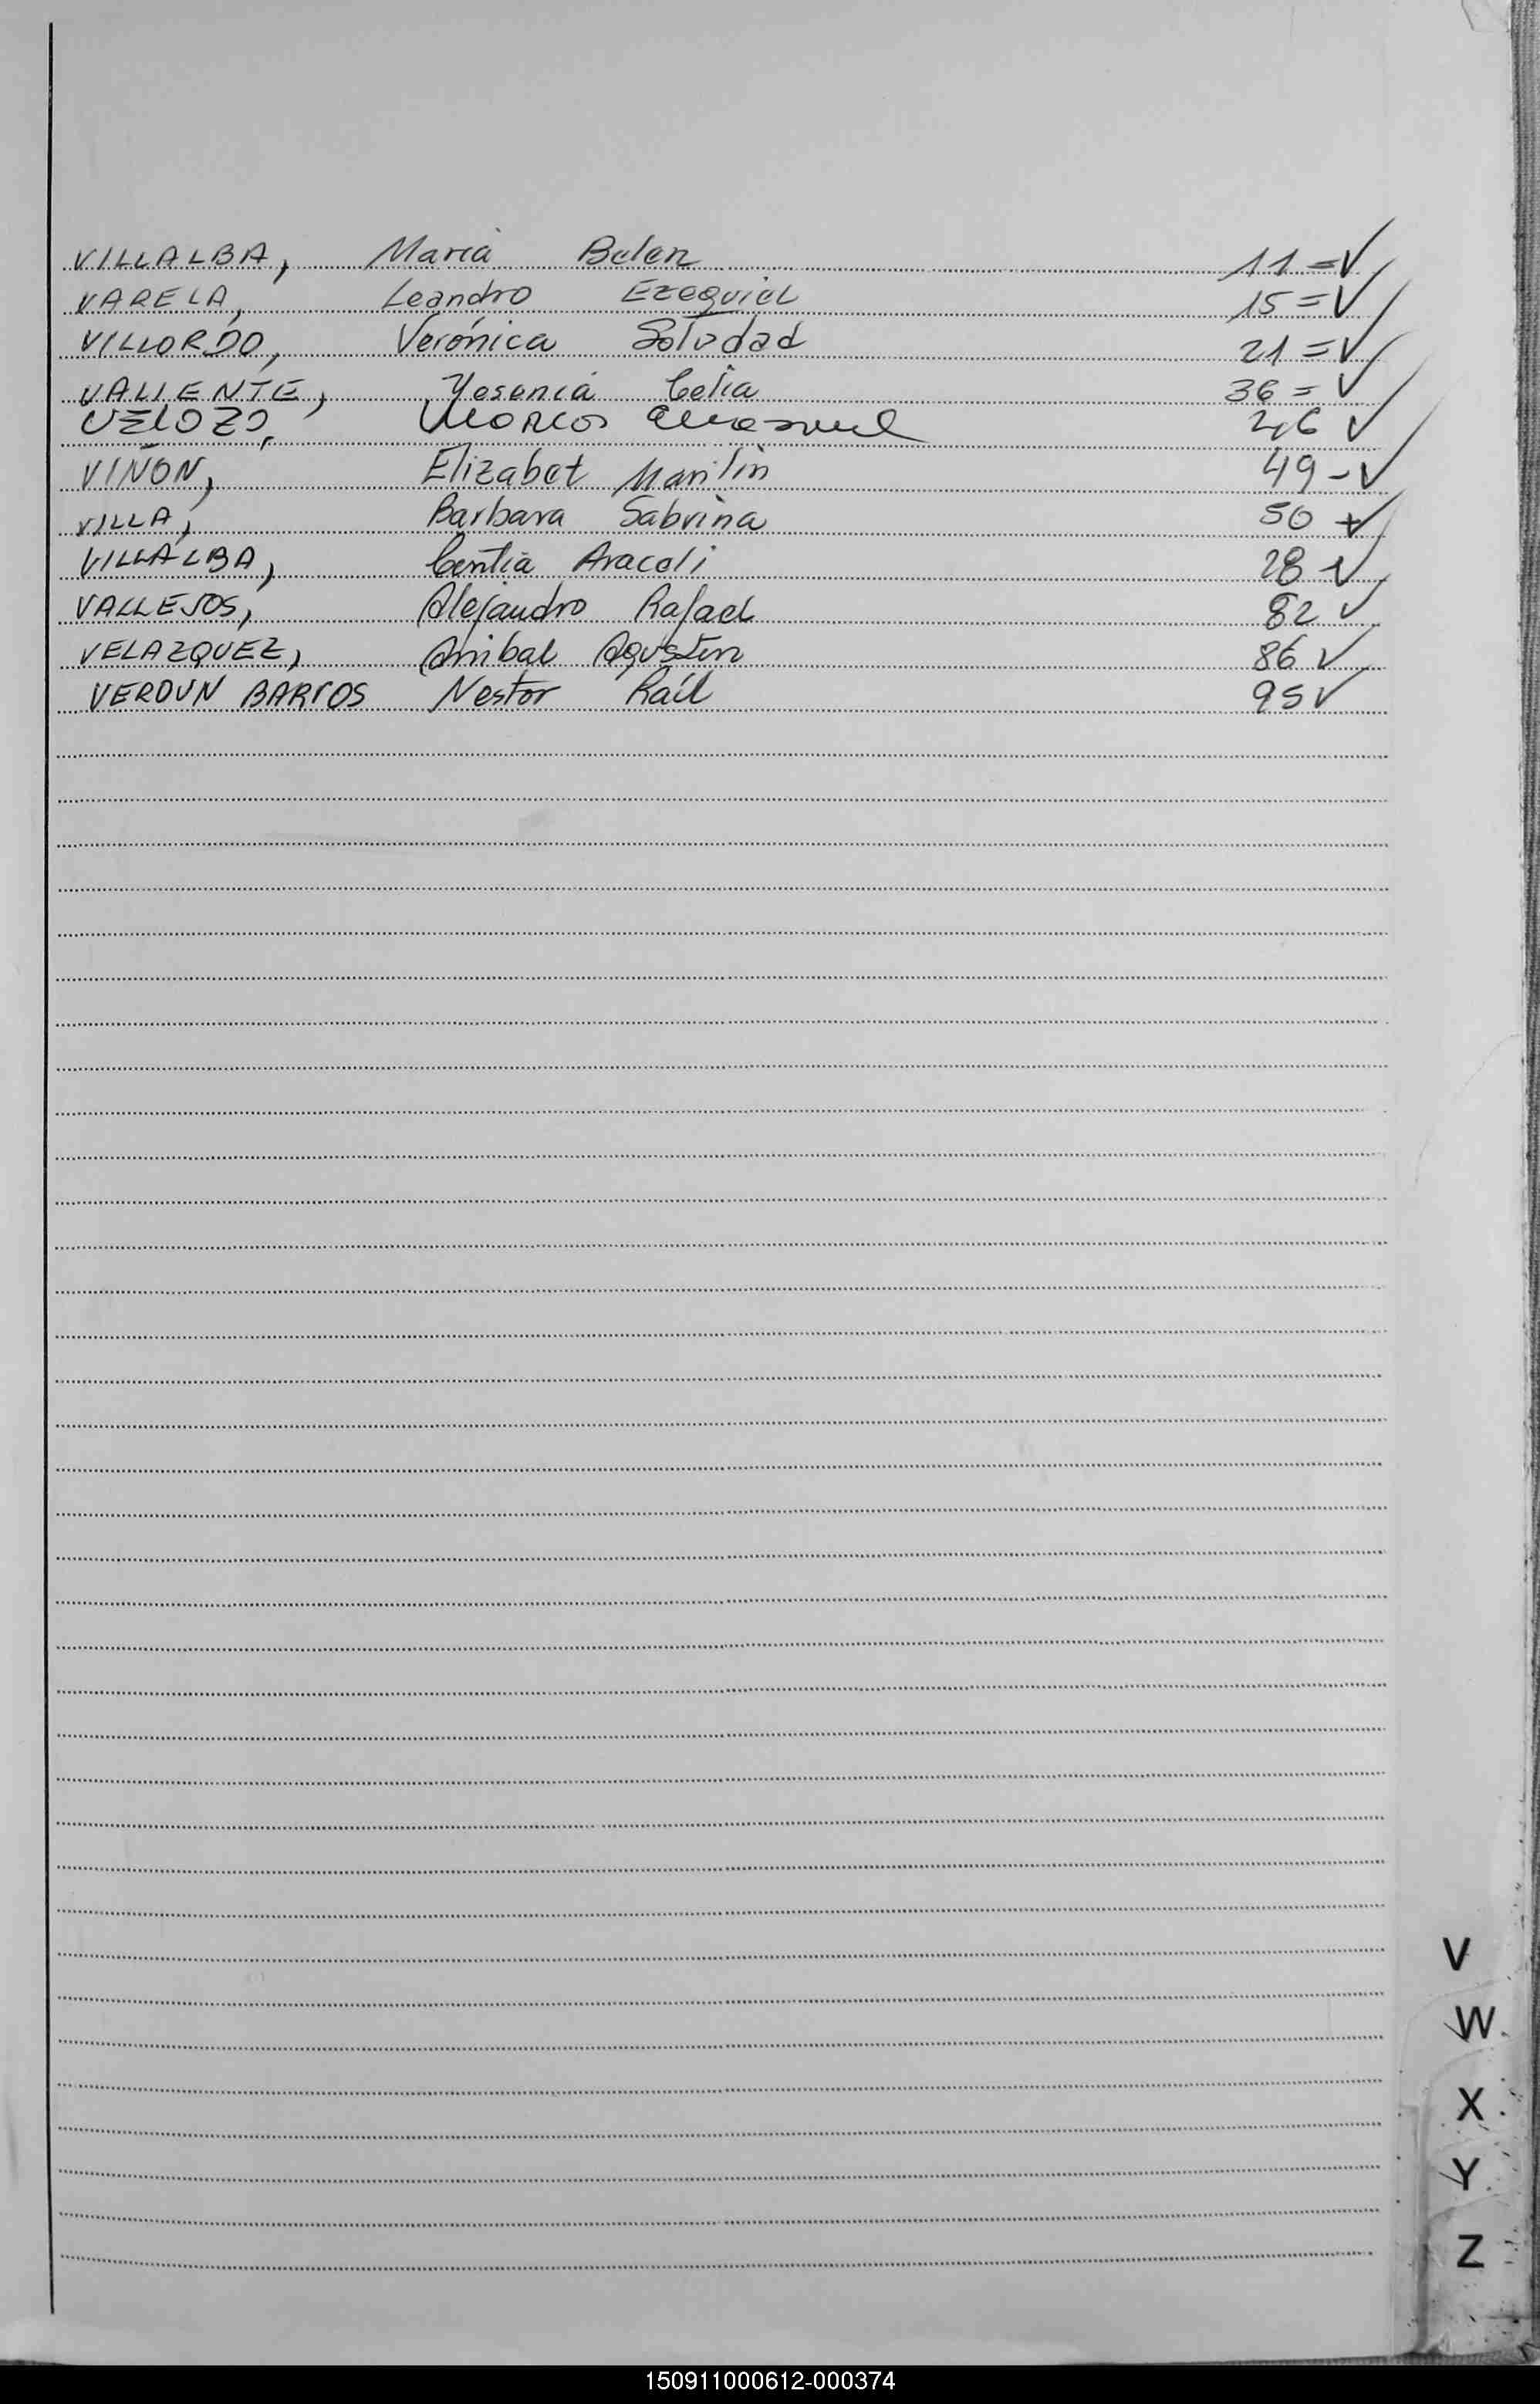 VILLALBA, María Belen 11 = ✓
VARELA, Leandro Ezequiel 15 = ✓
VILLORDO, Verónica Soledad 21 = ✓
VALIENTE, Yesenia Celia 36 = ✓
VELOZO, Marcos Emanuel 46 ✓
VIÑON, Elizabet Marilin 49 - ✓
VILLA, Barbara Sabrina 50 ✓
VILLALBA, Centia Araceli 28 ✓
VALLEJOS, Alejandro Rafael 82 ✓
VELAZQUEZ, Anibal Agustin 86 ✓
VERDUN BARTOS Nestor Raúl 95 ✓
V
W
X
Y
Z
150911000612-000374